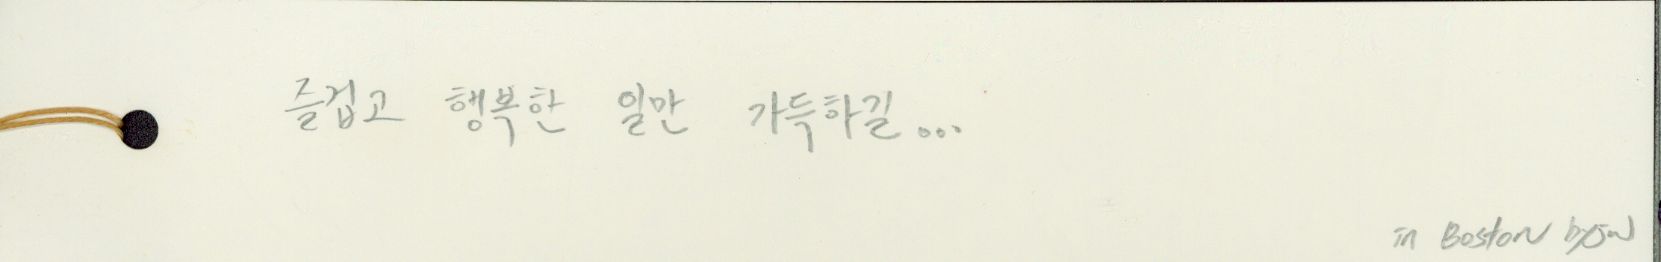 즐겁고 행복한 일만 가득하길...
in Boston by JW